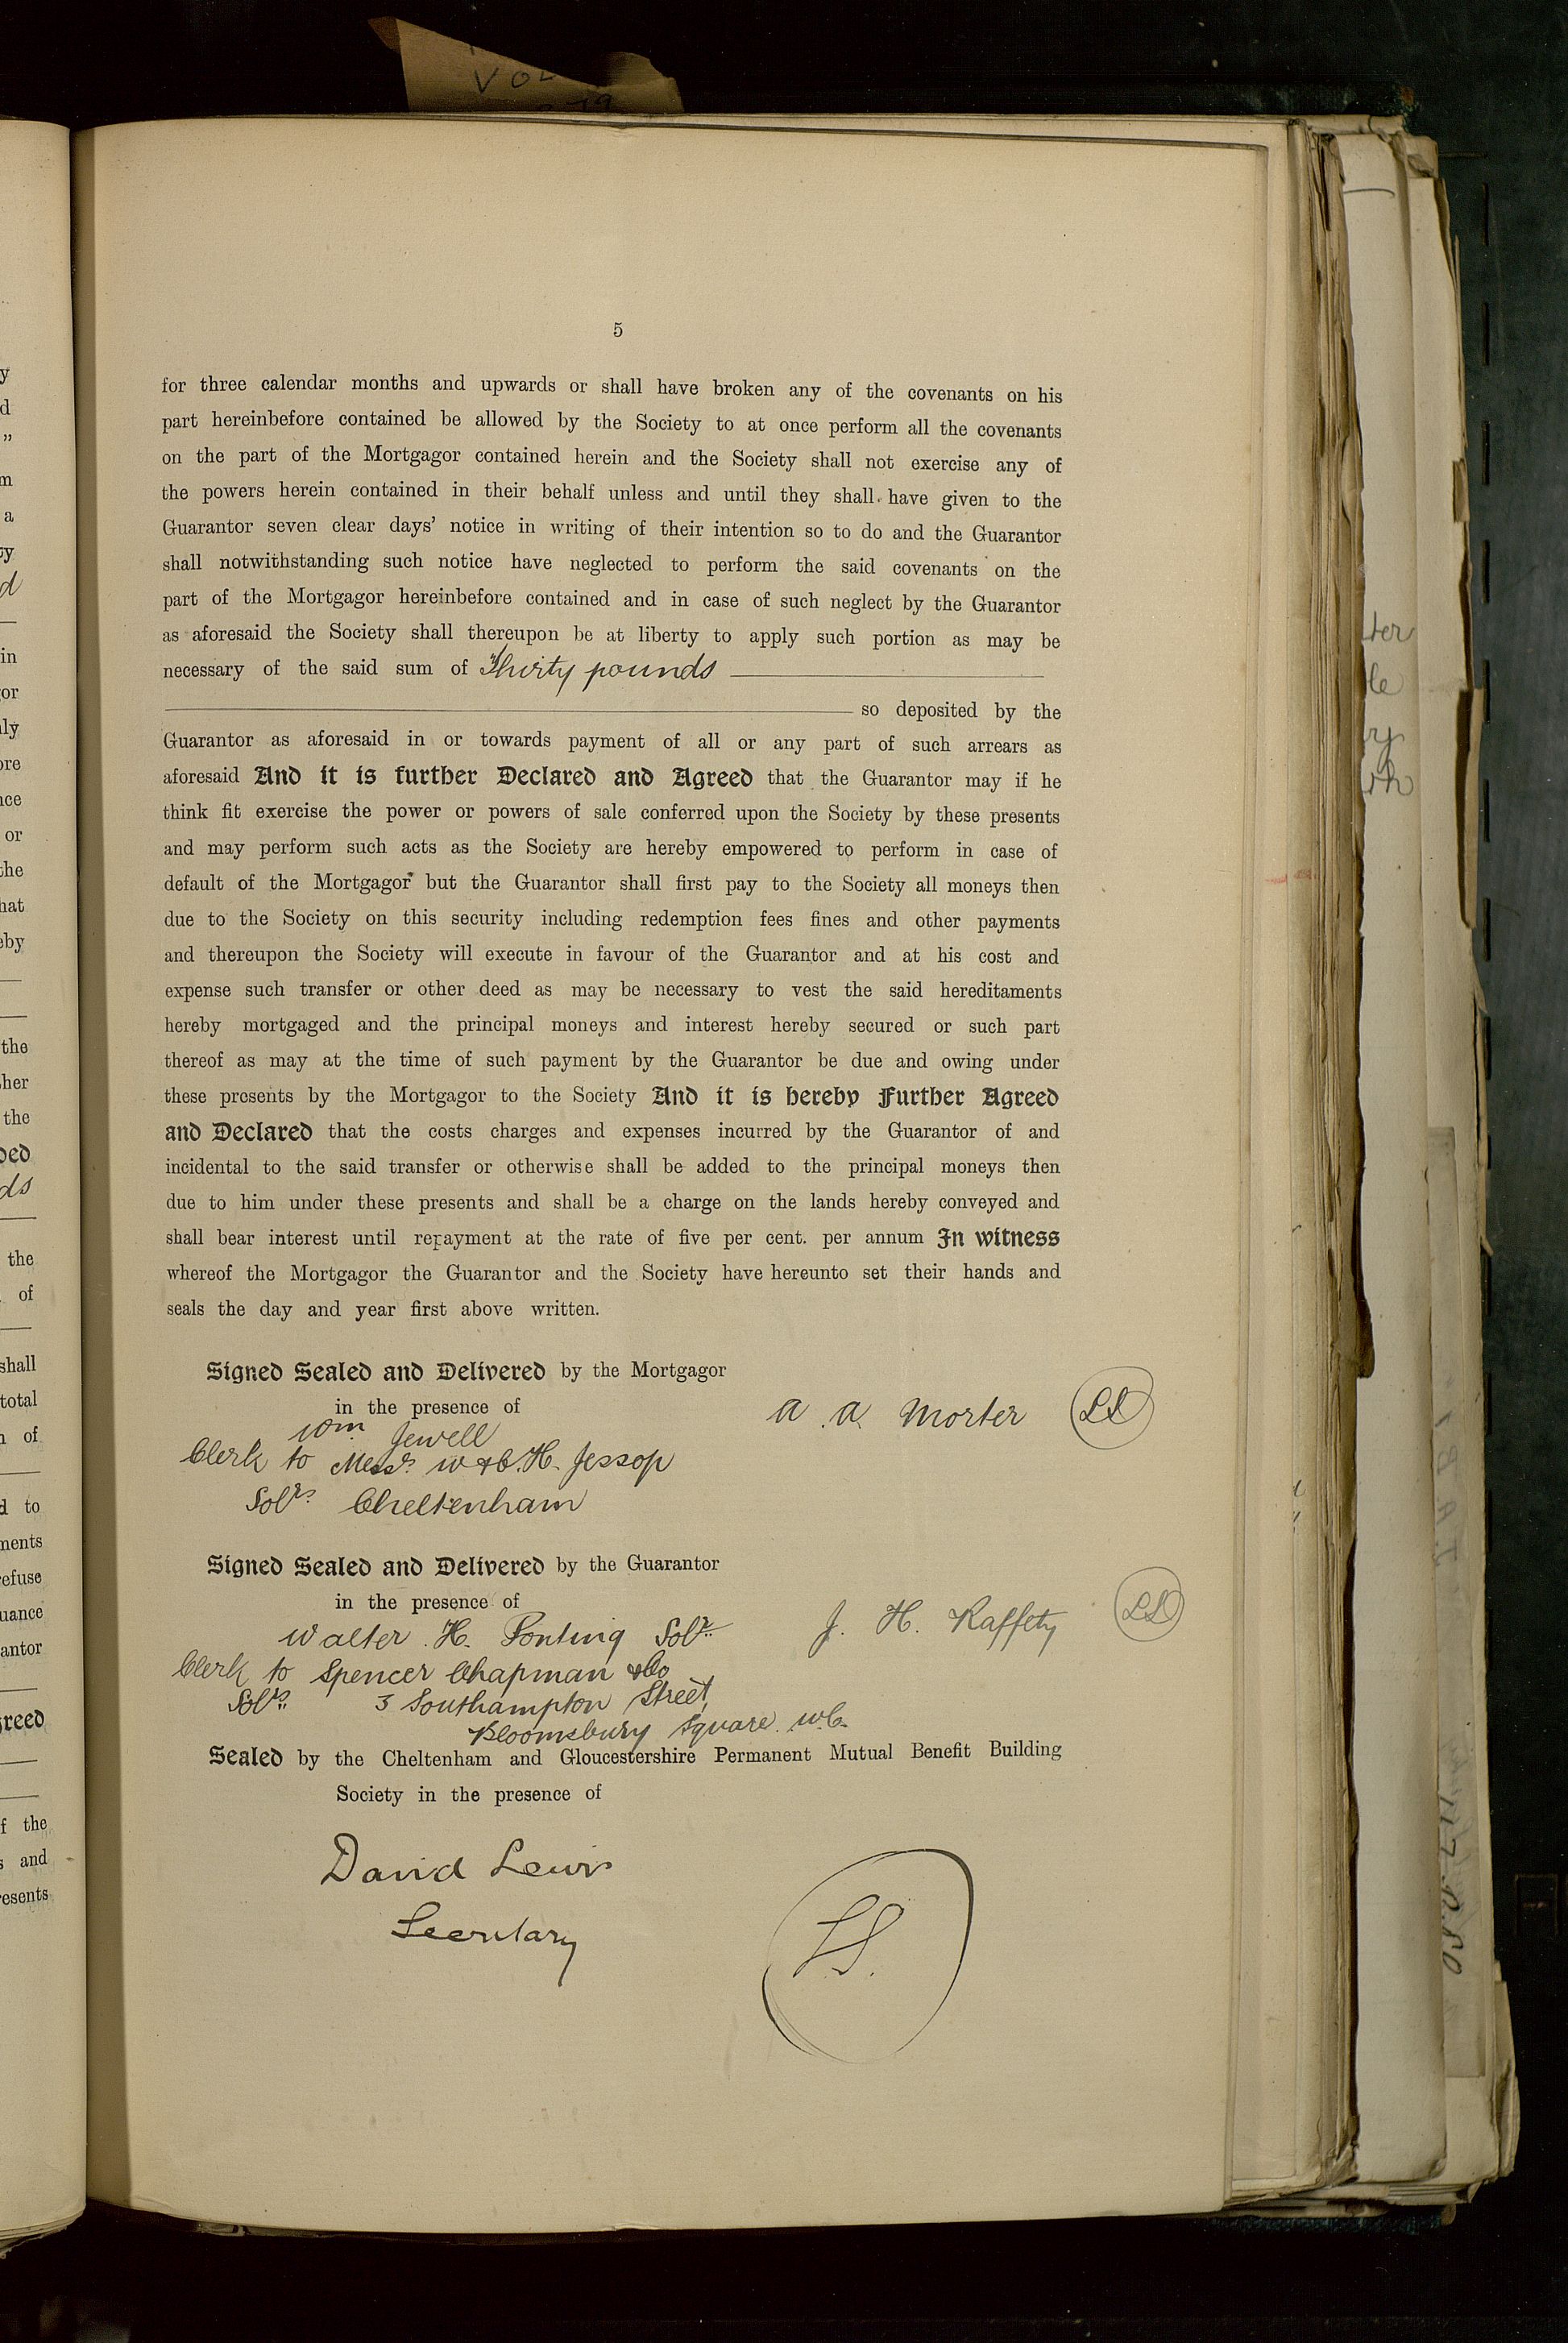 VOL
5
for three calendar months and upwards or shall have broken any of the covenants on his
part hereinbefore contained be allowed by the Society to at once perform all the covenants
on the part of the Mortgagor contained herein and the Society shall not exercise any of
the powers herein contained in their behalf unless and until they shall have given to the
Guarantor seven clear days' notice in writing of their intention so to do and the Guarantor
shall notwithstanding such notice have neglected to perform the said covenants on the
part of the Mortgagor hereinbefore contained and in case of such neglect by the Guarantor
as aforesaid the Society shall thereupon be at liberty to apply such portion as may be
necessary of the said sum of Thirty pounds
so deposited by the
Guarantor as aforesaid in or towards payment of all or any part of such arrears as
aforesaid And it is further Declared and Agreed that the Guarantor may if he
think fit exercise the power or powers of sale conferred upon the Society by these presents
and may perform such acts as the Society are hereby empowered to perform in case of
default of the Mortgagor but the Guarantor shall first pay to the Society all moneys then
due to the Society on this security including redemption fees fines and other payments
and thereupon the Society will execute in favour of the Guarantor and at his cost and
expense such transfer or other deed as may be necessary to vest the said hereditaments
hereby mortgaged and the principal moneys and interest hereby secured or such part
thereof as may at the time of such payment by the Guarantor be due and owing under
these presents by the Mortgagor to the Society And it is hereby Further Agreed
and Declared that the costs charges and expenses incurred by the Guarantor of and
incidental to the said transfer or otherwise shall be added to the principal moneys then
due to him under these presents and shall be a charge on the lands hereby conveyed and
shall bear interest until repayment at the rate of five per cent. per annum In witness
whereof the Mortgagor the Guarantor and the Society have hereunto set their hands and
seals the day and year first above written.
Signed Sealed and Delivered by the Mortgagor
in the presence of
A. A. Morter LS
Wm. Jewell
Clerk to Messrs. W & C. H. Jessop
Solrs. Cheltenham
Signed Sealed and Delivered by the Guarantor
in the presence of
J. H. Raffety LS
Walter H. Ponting Solr.
Clerk to Spencer Chapman & Co
Solrs. 3 Southampton Street,
Bloomsbury Square W.C.
Sealed by the Cheltenham and Gloucestershire Permanent Mutual Benefit Building
Society in the presence of
David Lewis
Secretary
L.S.